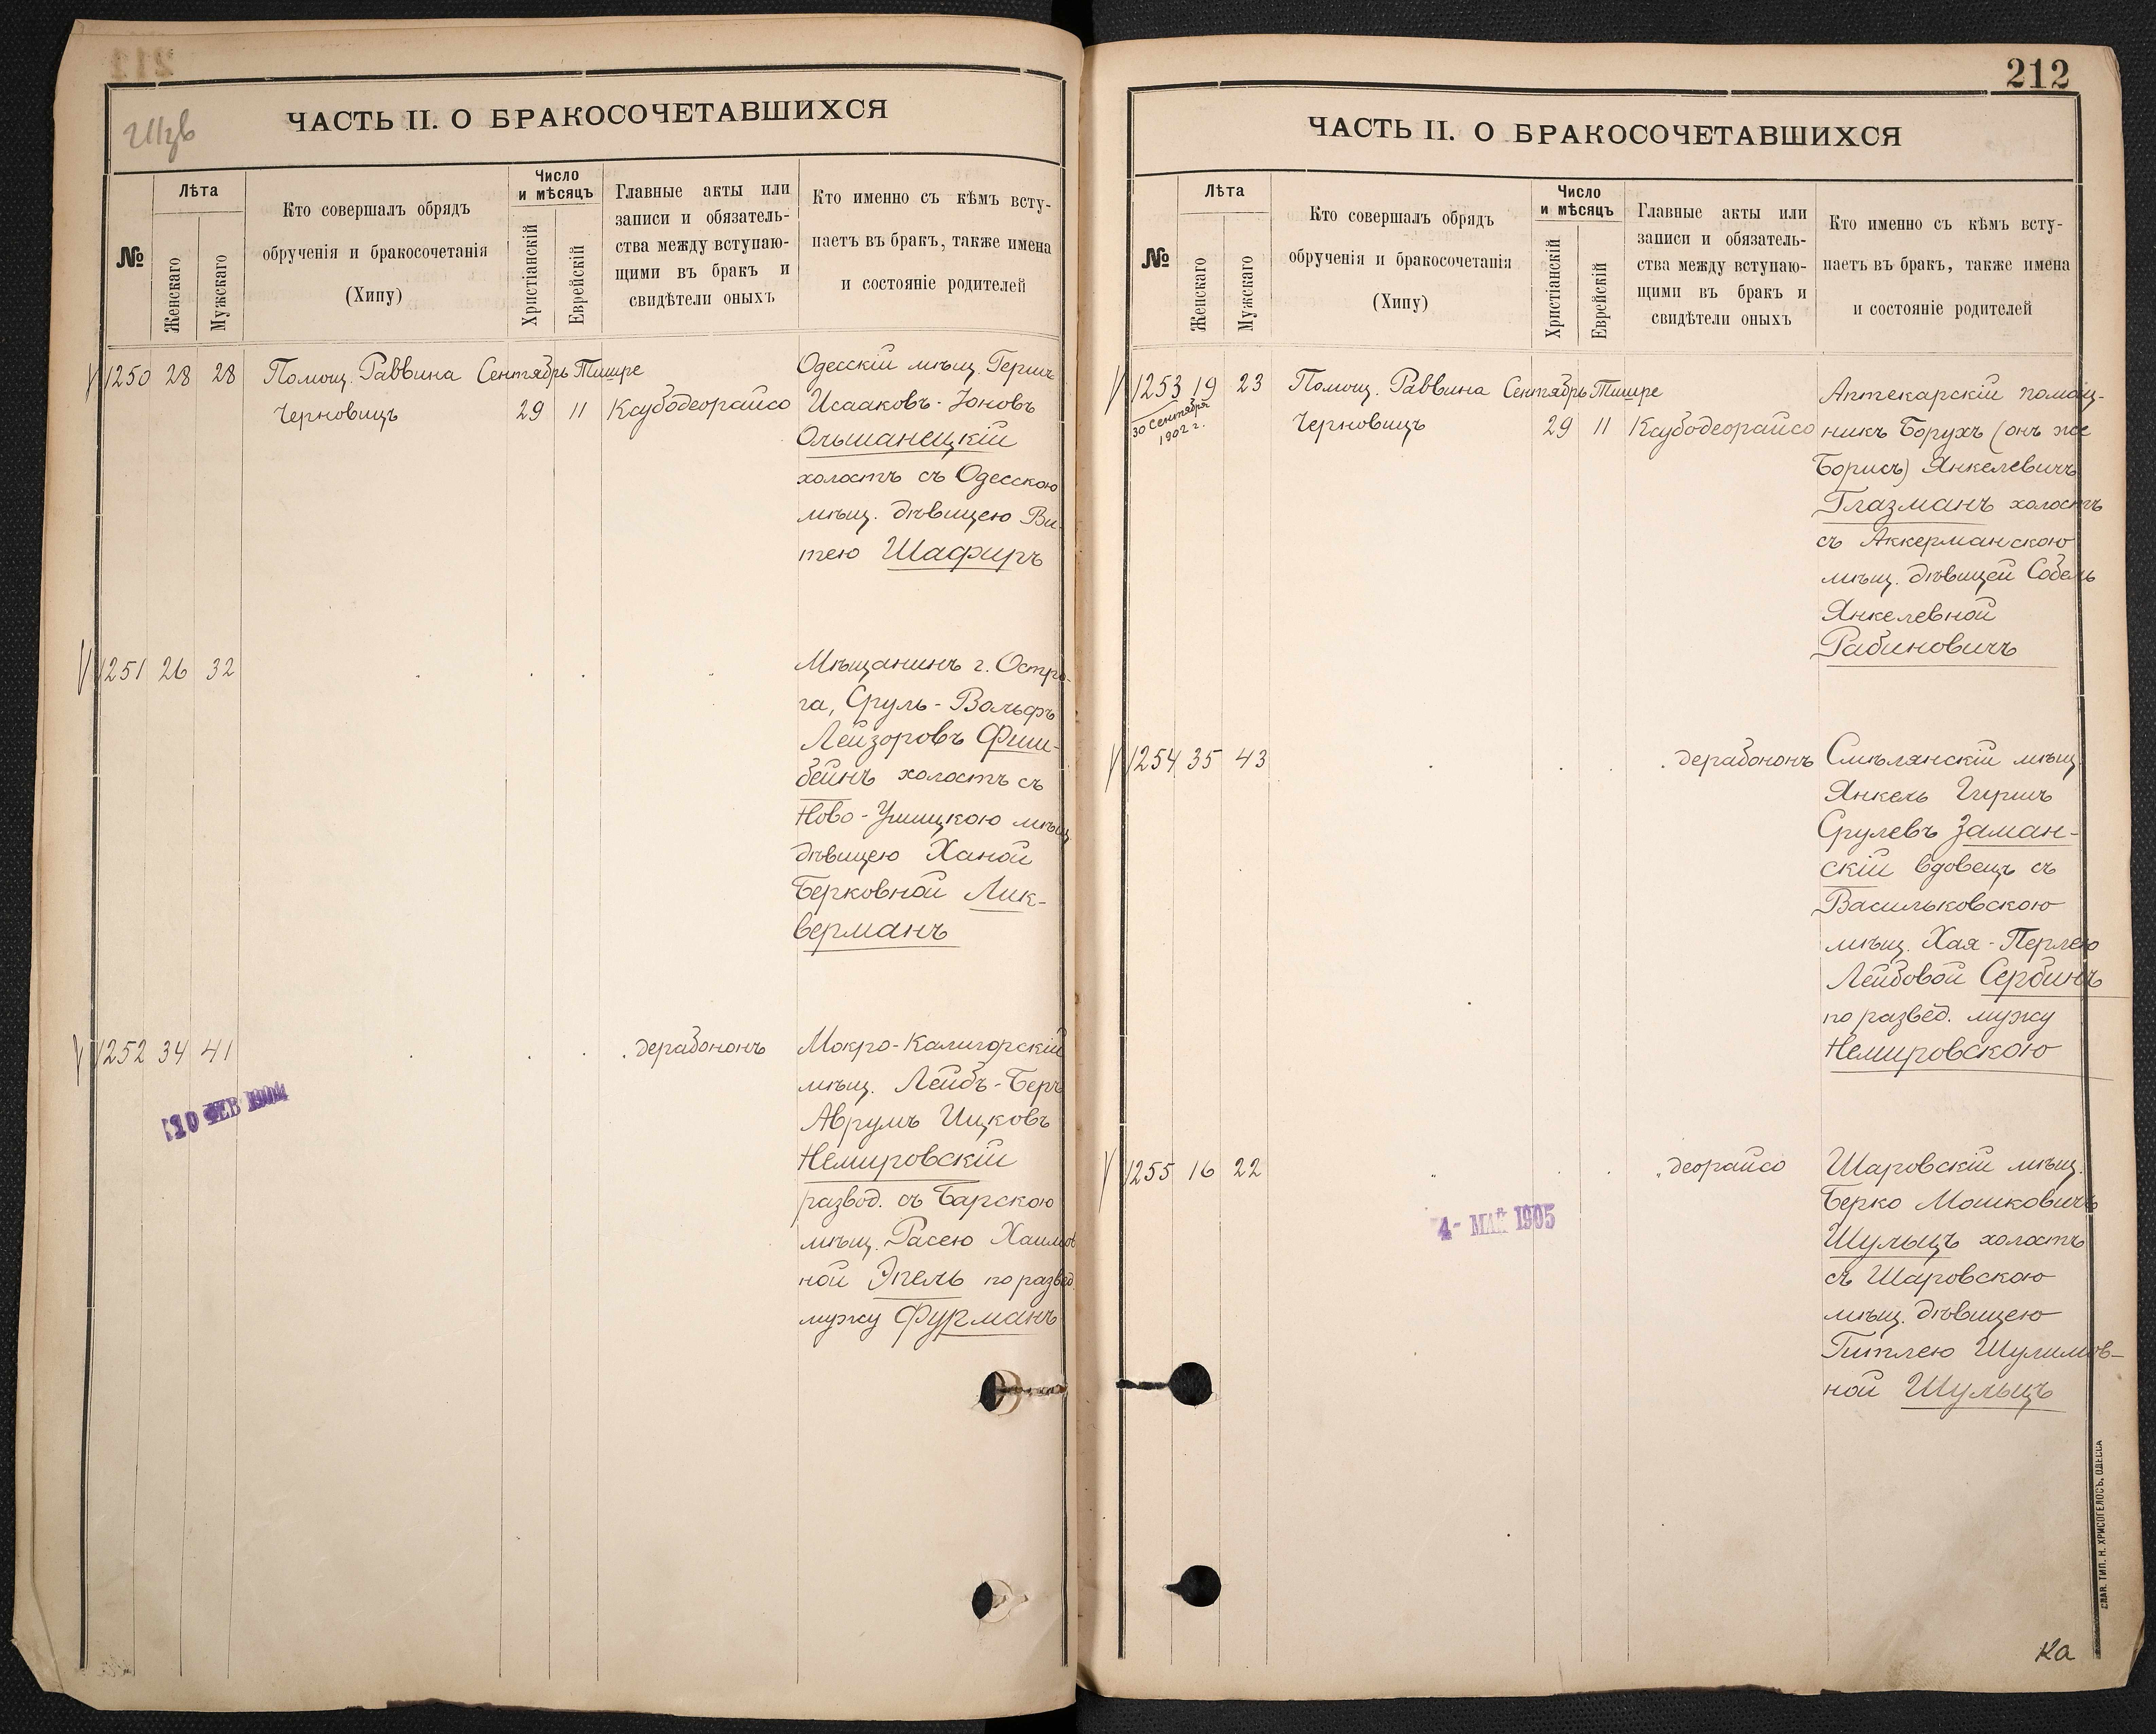 Шзв
ЧАСТЬ II. О БРАКОСОЧЕТАВШИХСЯ
№
Лѣта
Женскаго
Мужскаго
Кто совершалъ обрядъ
обрученія и бракосочетанія
(Хипу)
Число
и мѣсяцъ
Христіанскій
Еврейскій
Главные акты или
записи и обязатель-
ства между вступаю-
щими въ бракъ и
свидѣтели оныхъ
Кто именно съ кѣмъ всту-
паетъ въ бракъ, также имена
и состояніе родителей
1250 28 28 Помощ. Раввина Сентябрь Тишре Одесскій мѣщ. Гершъ
Черновицъ 29 11 Ксубодеорайсо Исааковъ-Іоновъ
Ольшанецкій
холостъ съ Одесскою
мѣщ. дѣвицею Ви-
тею Шафиръ
1251 26 32 Мѣщанинъ г. Остро-
га, Сруль-Вольфъ
Лейзоровъ Фиш-
бейнъ холостъ съ
Ново-Ушицкою мѣщ.
дѣвицею Ханой
Берковной Лик-
верманъ
1252 34 41 дерабононъ Мокро-Калигорскій
мѣщ. Лейбъ-Беръ
10 ФЕВ 1904
Аврумъ Ицковъ
Немировскій
развод. съ Барскою
мѣщ. Расею Хаимов
ной Эпель по развед.
мужу Фурманъ
212
ЧАСТЬ II. О БРАКОСОЧЕТАВШИХСЯ
№
Лѣта
Женскаго
Мужскаго
Кто совершалъ обрядъ
обрученія и бракосочетанія
(Хипу)
Число
и мѣсяцъ
Христіанскій
Еврейскій
Главные акты или
записи и обязатель-
ства между вступаю-
щими въ бракъ и
свидѣтели оныхъ
Кто именно съ кѣмъ всту-
паетъ въ бракъ, также имена
и состояніе родителей
1253 19 23 Помощ. Раввина Сентябрь Тишре Аптекарскій помощ-
30 Сентября
1902 г.
Черновицъ 29 11 Ксубодеорайсо никъ Борухъ (онъ же
Борисъ) Янкелевичъ
Глазманъ холостъ
съ Аккерманскою
мѣщ. дѣвицей Собель
Янкелевной
Рабиновичъ
1254 35 43 дерабононъ Смѣлянскій мѣщ.
Янкель Гершъ
Срулевъ Заман-
скій вдовецъ съ
Васильковскою
мѣщ. Хая-Перлею
Лейбовой Сербинъ
по развед. мужу
Немировскою
1255 16 22 деорайсо Шаровскій мѣщ.
Берко Мошковичъ
4 - МАЙ 1905
Шульцъ холостъ
съ Шаровскою
мѣщ. дѣвицею
Гитлею Шулимов-
ной Шульцъ
СЛАВ. ТИП. Н. ХРИСОГЕЛОСЪ, ОДЕССА
Ка